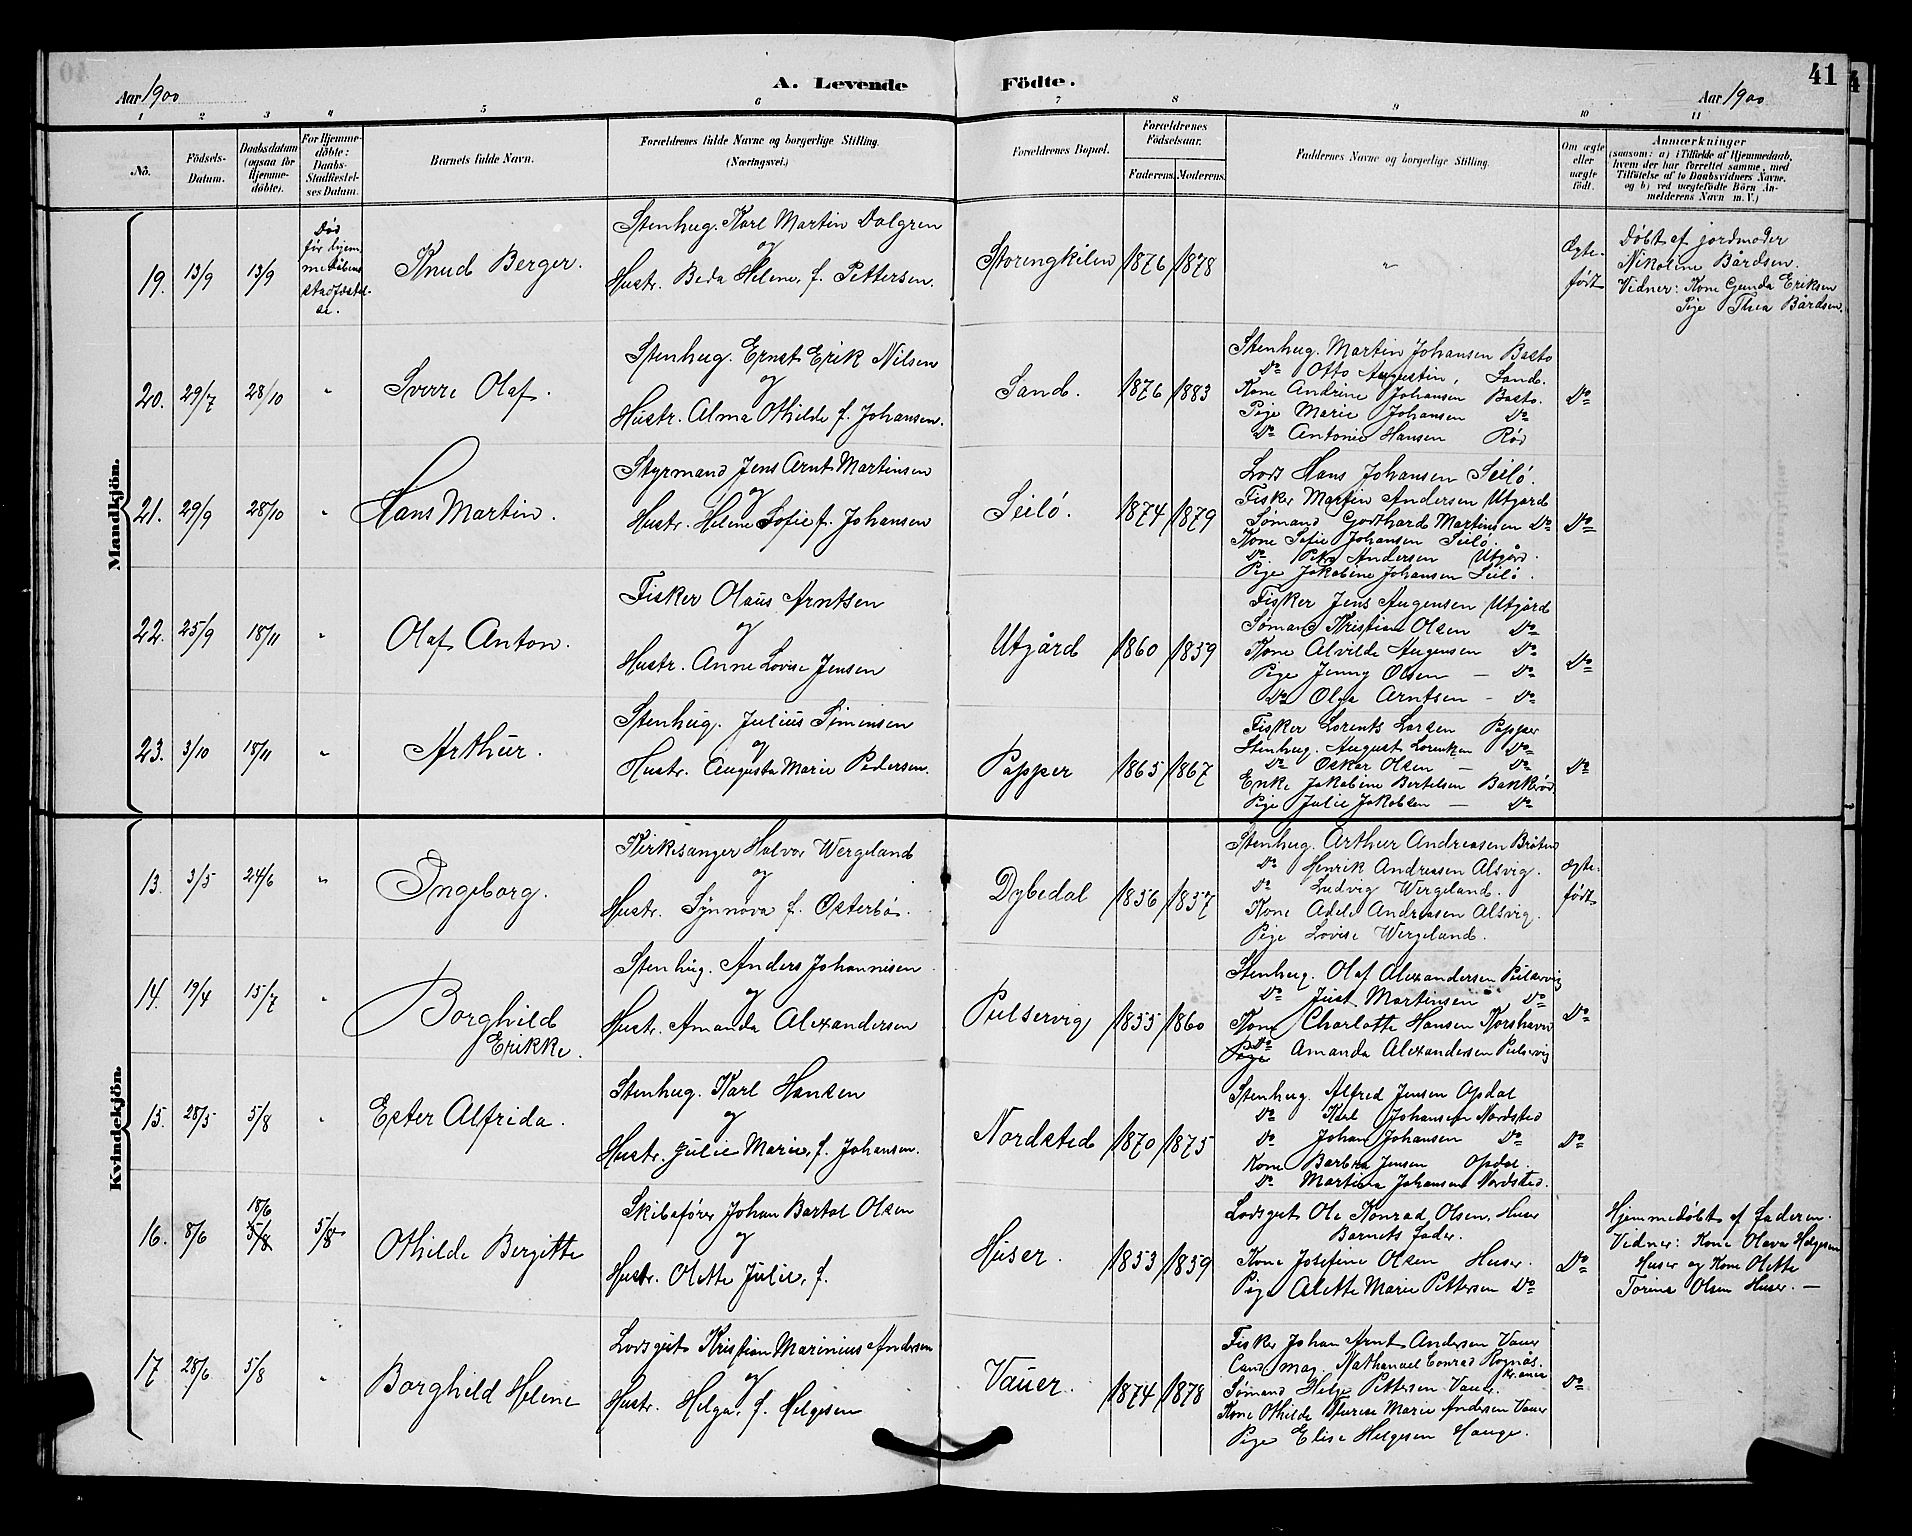 Aar 1900
A. Levende Födte.
Aar 1900
41
1 2 3 4 5 6 7 8 9 10 11
No.
Födsels-Datum.
Daabsdatum (ogsaa for Hjemme-döbte).
For Hjemme-döbte: Daabs-Stadfæstel-ses Datum.
Barnets fulde Navn.
Forældrenes fulde Navne og borgerlige Stilling. (Næringsvei.)
Forældrenes Bopæl.
Forældrenes Födselsaar.
Faderens. Moderens.
Faddernes Navne og borgerlige Stilling.
Om ægte eller uægte födt.
Anmærkninger
(saasom: a) i Tilfælde af Hjemmedaab,
hvem der har forrettet samme, med
Tilföielse af to Daabsvidners Navne.
og b) ved uægtefödte Börn An-
melderens Navn m. V.)
Mandkjön.
19. 13/9 13/9
Död
før hjem
me dåbens
stadfæstel-
se.
Knud Berger.
Stenhug. Karl Martin Dalgren
og
Hustr. Beda Helene, f. Pettersen.
Storengkilen 1876 1878
"
Ægte-
født
Døbt af jordmoder
Nikoline Bårdsen.
Vidner: Kone Gunda Eriksen
Pige Thea Bårdsen.
20. 29/7 28/10 "
Sverre Olaf.
Stenhug. Ernst Erik Nilsen
og
Hustr. Alma Othilde f. Johansen.
Sand. 1876 1883
Stenhug. Martin Johansen Basto
Do Otto Augustin, Sand.
Kone Andrine Johansen Basto.
Pige Marie Johansen Do
Do Antonie Hansen Rød
Do
21. 29/9 28/10 "
Hans Martin.
Styrmand Jens Arnt Martinsen
og
Hustr. Helene Sofie f. Johansen
Seilö. 1874 1879
Lods Hans Johansen Seilö.
Fisker Martin Andersen Utgård
Sømand Godthard Martinsen Do
Kone Sofie Johansen Seilö.
Do Petra Andersen Utgård.
Pige Jakobine Johansen Seilö.
Do
22. 25/9 18/11 "
Olaf Anton.
Fisker Olaus Arntsen
og
Hustr. Anne Lovise Jensen
Utgård 1860 1859
Fisker Jens Augensen Utgård
Sømand Kristian Olsen Do
Kone Alvilde Augensen Do
Pige Jenny Olsen — Do
Do Olga Arntsen - Do
Do
23. 3/10 18/11 "
Arthur.
Stenhug. Julius Simensen
og
Hustr. Augusta Marie Pedersen.
Papper 1865 1867
Fisker Lorents Larsen Papper
Stenhug. August Lorentzen Do
Do Oskar Olsen — Do
Enke Jakobine Bertelsen Bankerød
Pige Julie Jakobsen — Do
Do
Kvindekjön.
13. 3/5 24/6 "
Ingeborg.
Kirkesanger Halvor Wergeland
og
Hustr. Synnöva f. Österbö.
Dybedal 1856 1857
Stenhug. Arthur Andreasen Bråten
Do Henrik Andreasen Alsvig.
Do Ludvig Wergeland.
Kone Adele Andreasen Alsvig.
Pige Lovise Wergeland.
Ægte-
født
14. 19/4 15/7 "
Borghild
Erikke.
Stenhug. Anders Johannisen
og
Hustr. Amanda Alexandersen
Pulservig 1855 1860
Stenhug. Olaf Alexandersen Pulservig
Do Just Martinsen Do
Kone Charlotte Hansen Korshavn
Do Amanda Alexandersen Pulservig
Do
15. 28/5 5/8 "
Ester Alfrida.
Stenhug. Karl Hansen
og
Hustr. Julie Marie, f. Johansen.
Nordsted 1870 1875
Stenhug. Alfred Jensen Opdal
Do Karl Johansen Nordsted
Do Johan Johansen Do
Kone Barbra Jensen Opdal.
Do Martina Johansen Nordsted.
Do
16. 8/6 18/6 5/8 5/8
Othilde Bergitte
Skibsfører Johan Bartol Olsen
og
Hustr. Olette Julie, f.
Huser. 1853 1859
Lodsgut Ole Konrad Olsen, Huser
Barnets Fader.
Kone Josefine Olsen Huser.
Pige Alette Marie Pettersen Do
Do
Hjemmedøbt af faderen.
Vidner: Kone Olava Helgesen
Huser og Kone Olette
Torine Olsen Huser. —
17 28/6 5/8 "
Borghild Helene
Lodsgut Kristian Marinius Andersen
og
Hustr. Helga, f. Helgesen
Vauer. 1874 1878
Fisker Johan Arnt Andersen Vauer
Cand. mag. Nathanael Conrad Rognås.
Kr.ania
Sømand Helge Pettersen Vauer.
Kone Othilde Therese Marie Andersen Vauer
Pige Elise Helgesen Hauge.
Do